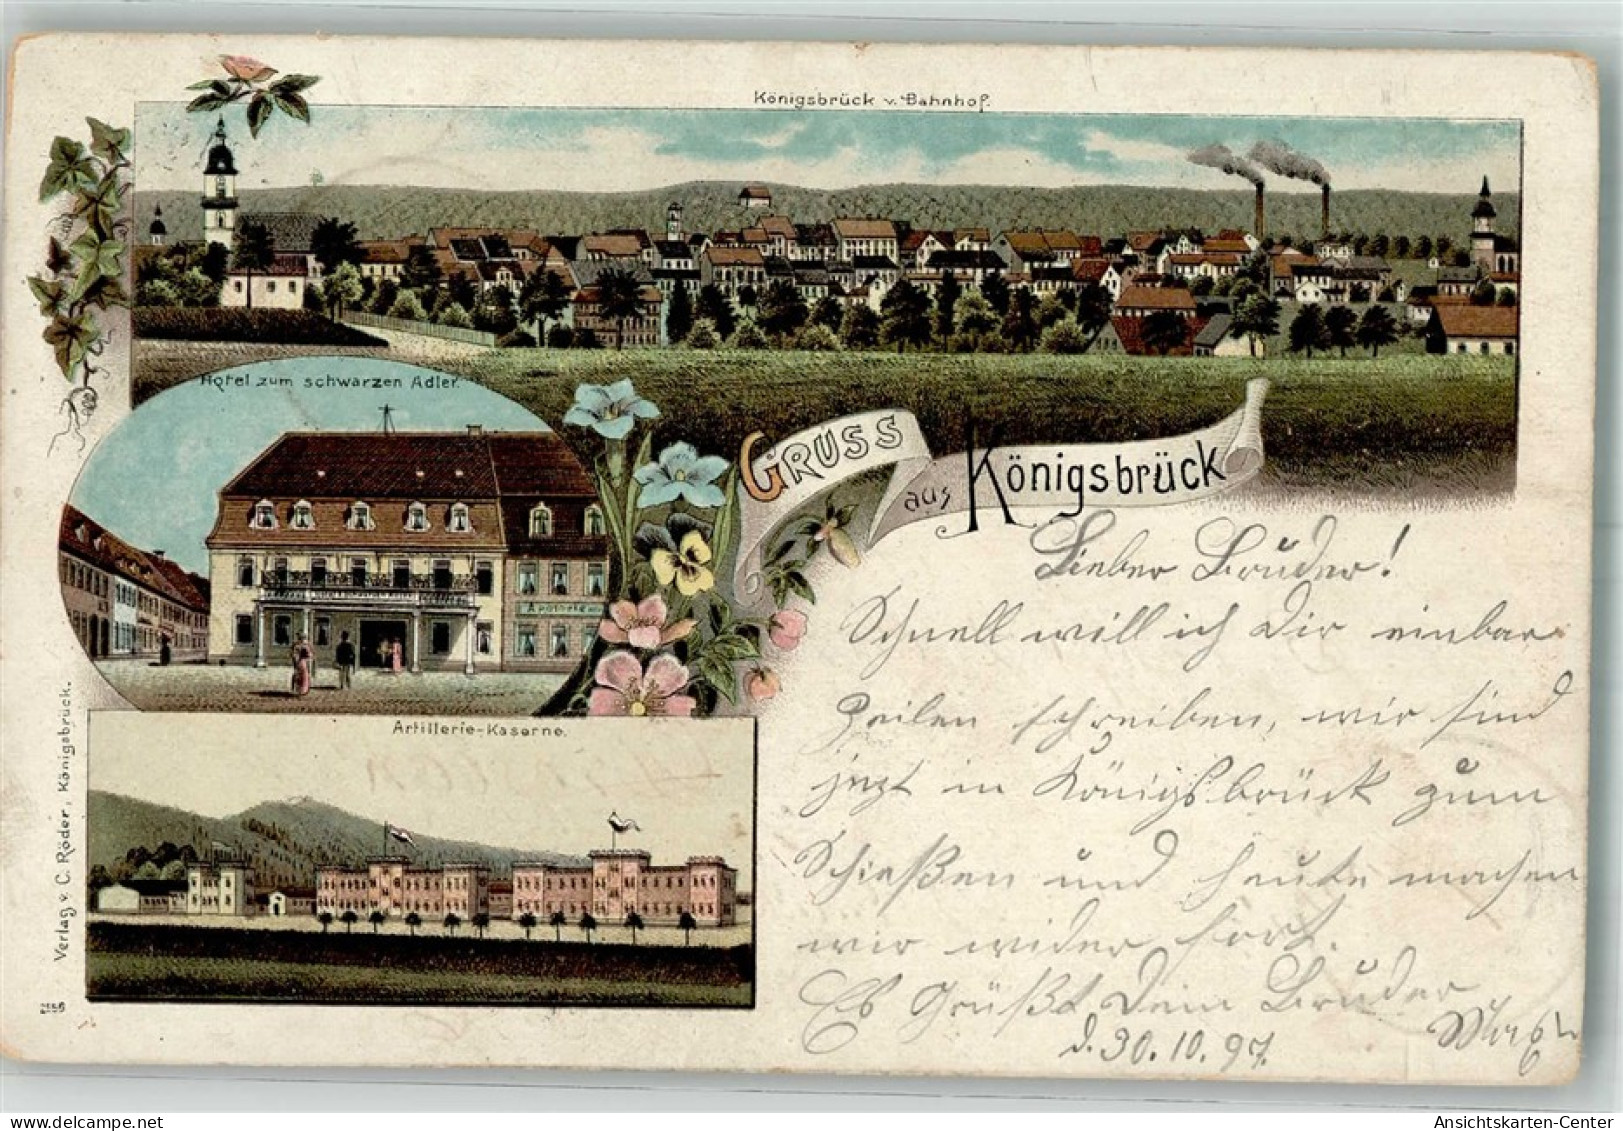 Königsbrück v. Bahnhof.
Hotel zum schwarzen Adler.
Apotheke
GRUSS
aus Königsbrück
Artillerie-Kaserne.
Verlag v. C. Röder, Königsbrück.
Lieber Bruder!
Schnell will ich Dir einbar
Zeilen schreiben, wir sind
jezt in Königsbrück zum
Schießen und heute machen
wir wider fort.
Es Grüßt Dein Bruder
d. 30.10.97.
Ansichtskarten-Center